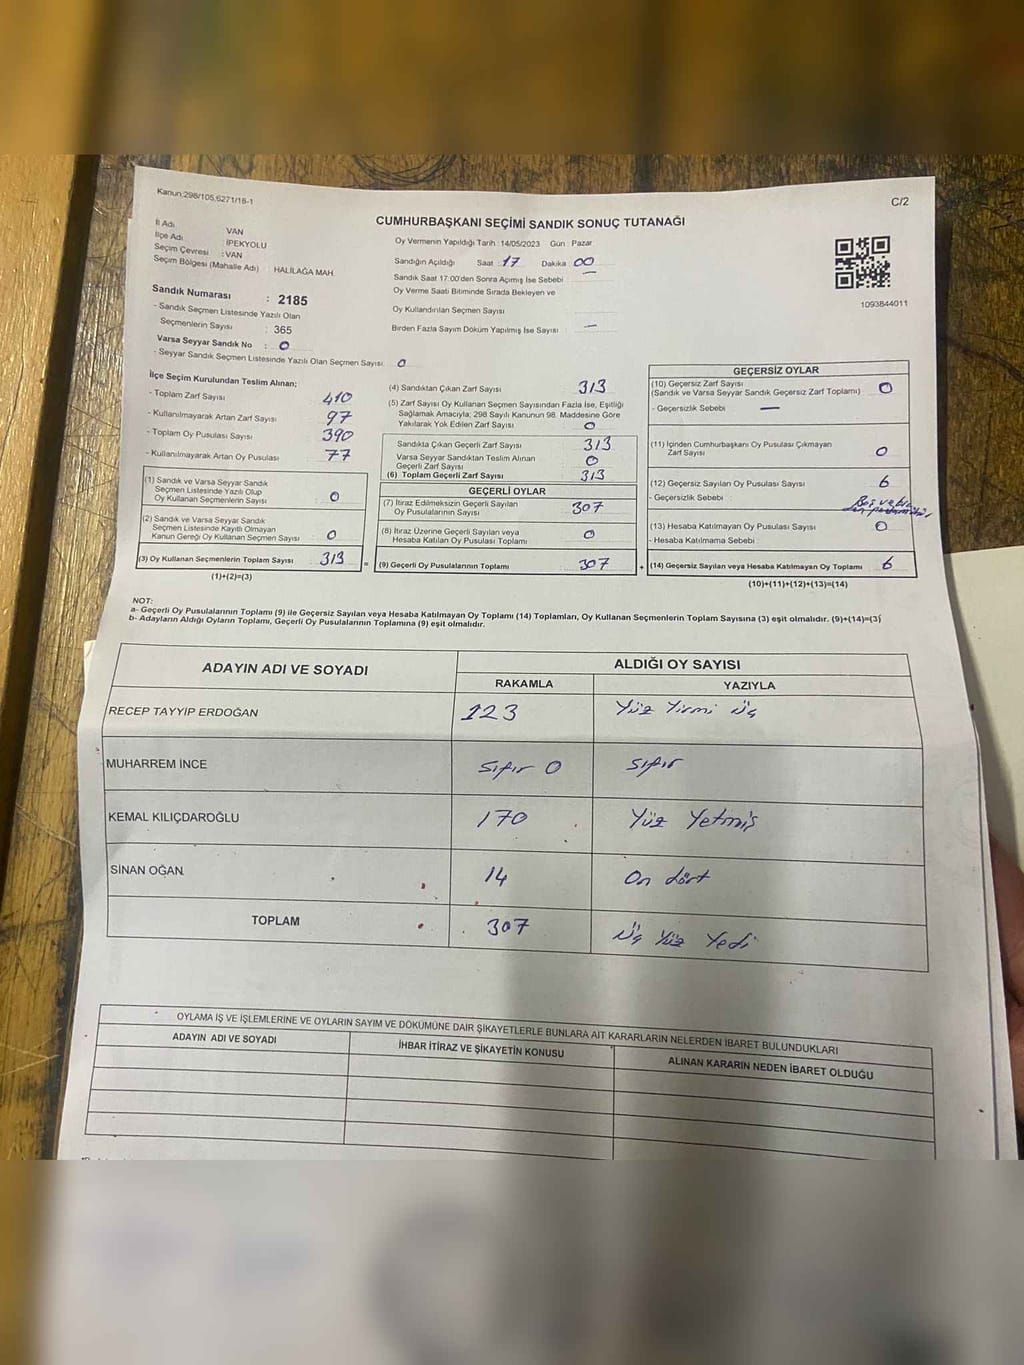 Kanun:298/105,6271/18-1
C/2
CUMHURBAŞKANI SEÇİMİ SANDIK SONUÇ TUTANAĞI
İl Adı VAN
İlçe Adı : İPEKYOLU
Seçim Çevresi : VAN
Seçim Bölgesi (Mahalle Adı) : HALİLAĞA MAH.
Sandık Numarası : 2185
- Sandık Seçmen Listesinde Yazılı Olan
Seçmenlerin Sayısı : 365
Varsa Seyyar Sandık No : 0
- Seyyar Sandık Seçmen Listesinde Yazılı Olan Seçmen Sayısı 0
Oy Vermenin Yapıldığı Tarih : 14/05/2023 Gün : Pazar
Sandığın Açıldığı Saat : 17 Dakika : 00
Sandık Saat 17:00'den Sonra Açımış İse Sebebi : —
Oy Verme Saati Bitiminde Sırada Bekleyen ve
Oy Kullandırılan Seçmen Sayısı :
Birden Fazla Sayım Döküm Yapılmış İse Sayısı : —
1093844011
İlçe Seçim Kurulundan Teslim Alınan;
- Toplam Zarf Sayısı : 410
- Kullanılmayarak Artan Zarf Sayısı : 97
- Toplam Oy Pusulası Sayısı : 390
- Kullanılmayarak Artan Oy Pusulası : 77
(1) Sandık ve Varsa Seyyar Sandık
Seçmen Listesinde Yazılı Olup
Oy Kullanan Seçmenlerin Sayısı : 0
(2) Sandık ve Varsa Seyyar Sandık
Seçmen Listesinde Kayıtlı Olmayan
Kanun Gereği Oy Kullanan Seçmen Sayısı : 0
(3) Oy Kullanan Seçmenlerin Toplam Sayısı : 313
(1)+(2)=(3)
(4) Sandıktan Çıkan Zarf Sayısı : 313
(5) Zarf Sayısı Oy Kullanan Seçmen Sayısından Fazla İse, Eşitliği
Sağlamak Amacıyla; 298 Sayılı Kanunun 98. Maddesine Göre
Yakılarak Yok Edilen Zarf Sayısı : 0
Sandıkta Çıkan Geçerli Zarf Sayısı : 313
Varsa Seyyar Sandıktan Teslim Alınan
Geçerli Zarf Sayısı : 0
(6) Toplam Geçerli Zarf Sayısı : 313
GEÇERLİ OYLAR
(7) İtiraz Edilmeksizin Geçerli Sayılan
Oy Pusulalarının Sayısı : 307
(8) İtiraz Üzerine Geçerli Sayılan veya
Hesaba Katılan Oy Pusulası Toplamı : 0
= (9) Geçerli Oy Pusulalarının Toplamı : 307
GEÇERSİZ OYLAR
(10) Geçersiz Zarf Sayısı
(Sandık ve Varsa Seyyar Sandık Geçersiz Zarf Toplamı) : 0
- Geçersizlik Sebebi : —
(11) İçinden Cumhurbaşkanı Oy Pusulası Çıkmayan
Zarf Sayısı : 0
(12) Geçersiz Sayılan Oy Pusulası Sayısı : 6
- Geçersizlik Sebebi : Boş ve
(13) Hesaba Katılmayan Oy Pusulası Sayısı : 0
- Hesaba Katılmama Sebebi :
+ (14) Geçersiz Sayılan veya Hesaba Katılmayan Oy Toplamı : 6
(10)+(11)+(12)+(13)=(14)
NOT:
a- Geçerli Oy Pusulalarının Toplamı (9) ile Geçersiz Sayılan veya Hesaba Katılmayan Oy Toplamı (14) Toplamları, Oy Kullanan Seçmenlerin Toplam Sayısına (3) eşit olmalıdır. (9)+(14)=(3)
b- Adayların Aldığı Oyların Toplamı, Geçerli Oy Pusulalarının Toplamına (9) eşit olmalıdır.
ADAYIN ADI VE SOYADI ALDIĞI OY SAYISI
RAKAMLA YAZIYLA
RECEP TAYYİP ERDOĞAN 123 Yüz Yirmi Üç
MUHARREM İNCE Sıfır 0 Sıfır
KEMAL KILIÇDAROĞLU 170 Yüz Yetmiş
SİNAN OĞAN 14 On dört
TOPLAM 307 Üç Yüz Yedi
OYLAMA İŞ VE İŞLEMLERİNE VE OYLARIN SAYIM VE DÖKÜMÜNE DAİR ŞİKAYETLERLE BUNLARA AİT KARARLARIN NELERDEN İBARET BULUNDUKLARI
ADAYIN ADI VE SOYADI İHBAR İTİRAZ VE ŞİKAYETİN KONUSU ALINAN KARARIN NEDEN İBARET OLDUĞU